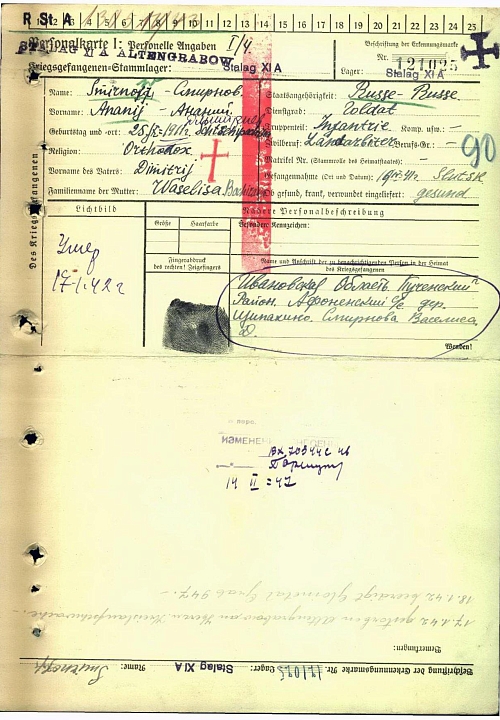 R St A 1 2 3 4 5 6 7 8 9 10 11 12 13 14 15 16 17 18 19 20 21 22 23 24 25
Personalkarte I: Personelle Angaben I/4.
STALAG XI A ALTENGRABOW
Beschriftung der Erkennungsmarke
Nr. 121025
Kriegsgefangenen-Stammlager: Stalag XI A
Lager: Stalag XI A
Des Kriegsgefangenen
Name: Smirnoff Смирнов
Staatsangehörigkeit: Russe - Russe
Vorname: Ananij - Ананий
Dienstgrad: Soldat
Geburtstag und -ort:
Truppenteil: Infantrie Komp. usw.: -
Religion: Orthodox
Zivilberuf: Landarbeiter Berufs-Gr.: -
90
Matrikel Nr. (Stammrolle des Heimatstaates): -
Vorname des Vaters: Dimitrij
Gefangennahme (Ort und Datum): Slutsk
Familienname der Mutter: Waselisa
Ob gesund, krank, verwundet eingeliefert: gesund
Lichtbild
Nähere Personalbeschreibung
Größe
Haarfarbe
Besondere Kennzeichen:
Умер
17.1.42 г
Fingerabdruck
des rechten! Zeigefingers
Name und Anschrift der zu benachrichtigenden Person in der Heimat
des Kriegsgefangenen
Ивановская Область Пученский
Район. Афоненский с/с дер.
Щипахино. Смирнова Василиса
Д.
Wenden!
14 II =47
18.1.42 beerdigt Grab 947. -
17.1.42 gestorben Altengrabow an Herz- u. Kreislaufschwäche. -
Bemerkungen:
Beschriftung der Erkennungsmarke Nr. 121025 Lager: Stalag XI A Name: Smirnoff